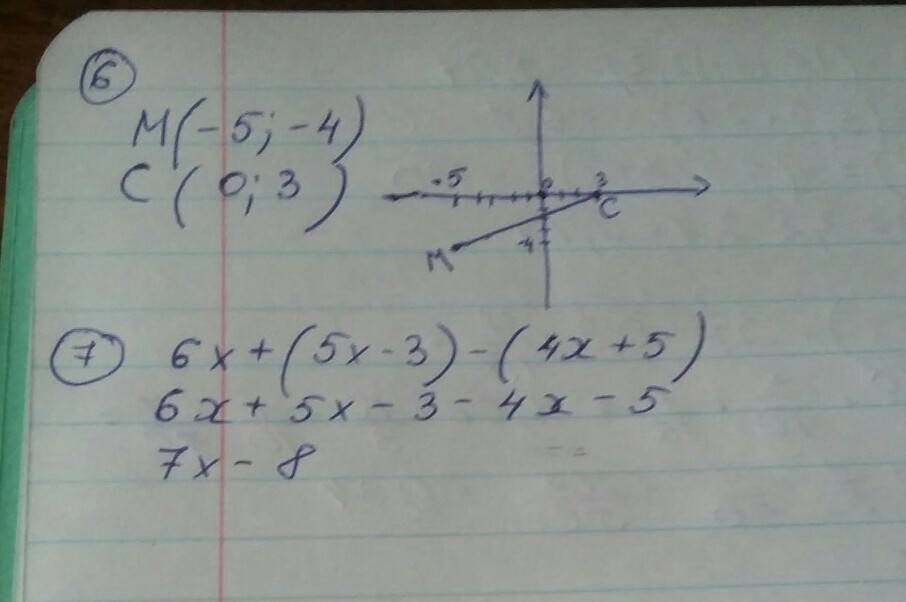 6
M(-5; -4)
C(0; 3)
-5 0 3
C
-4
M
7 6x+(5x-3)-(4x+5)
6x+5x-3-4x-5
7x-8